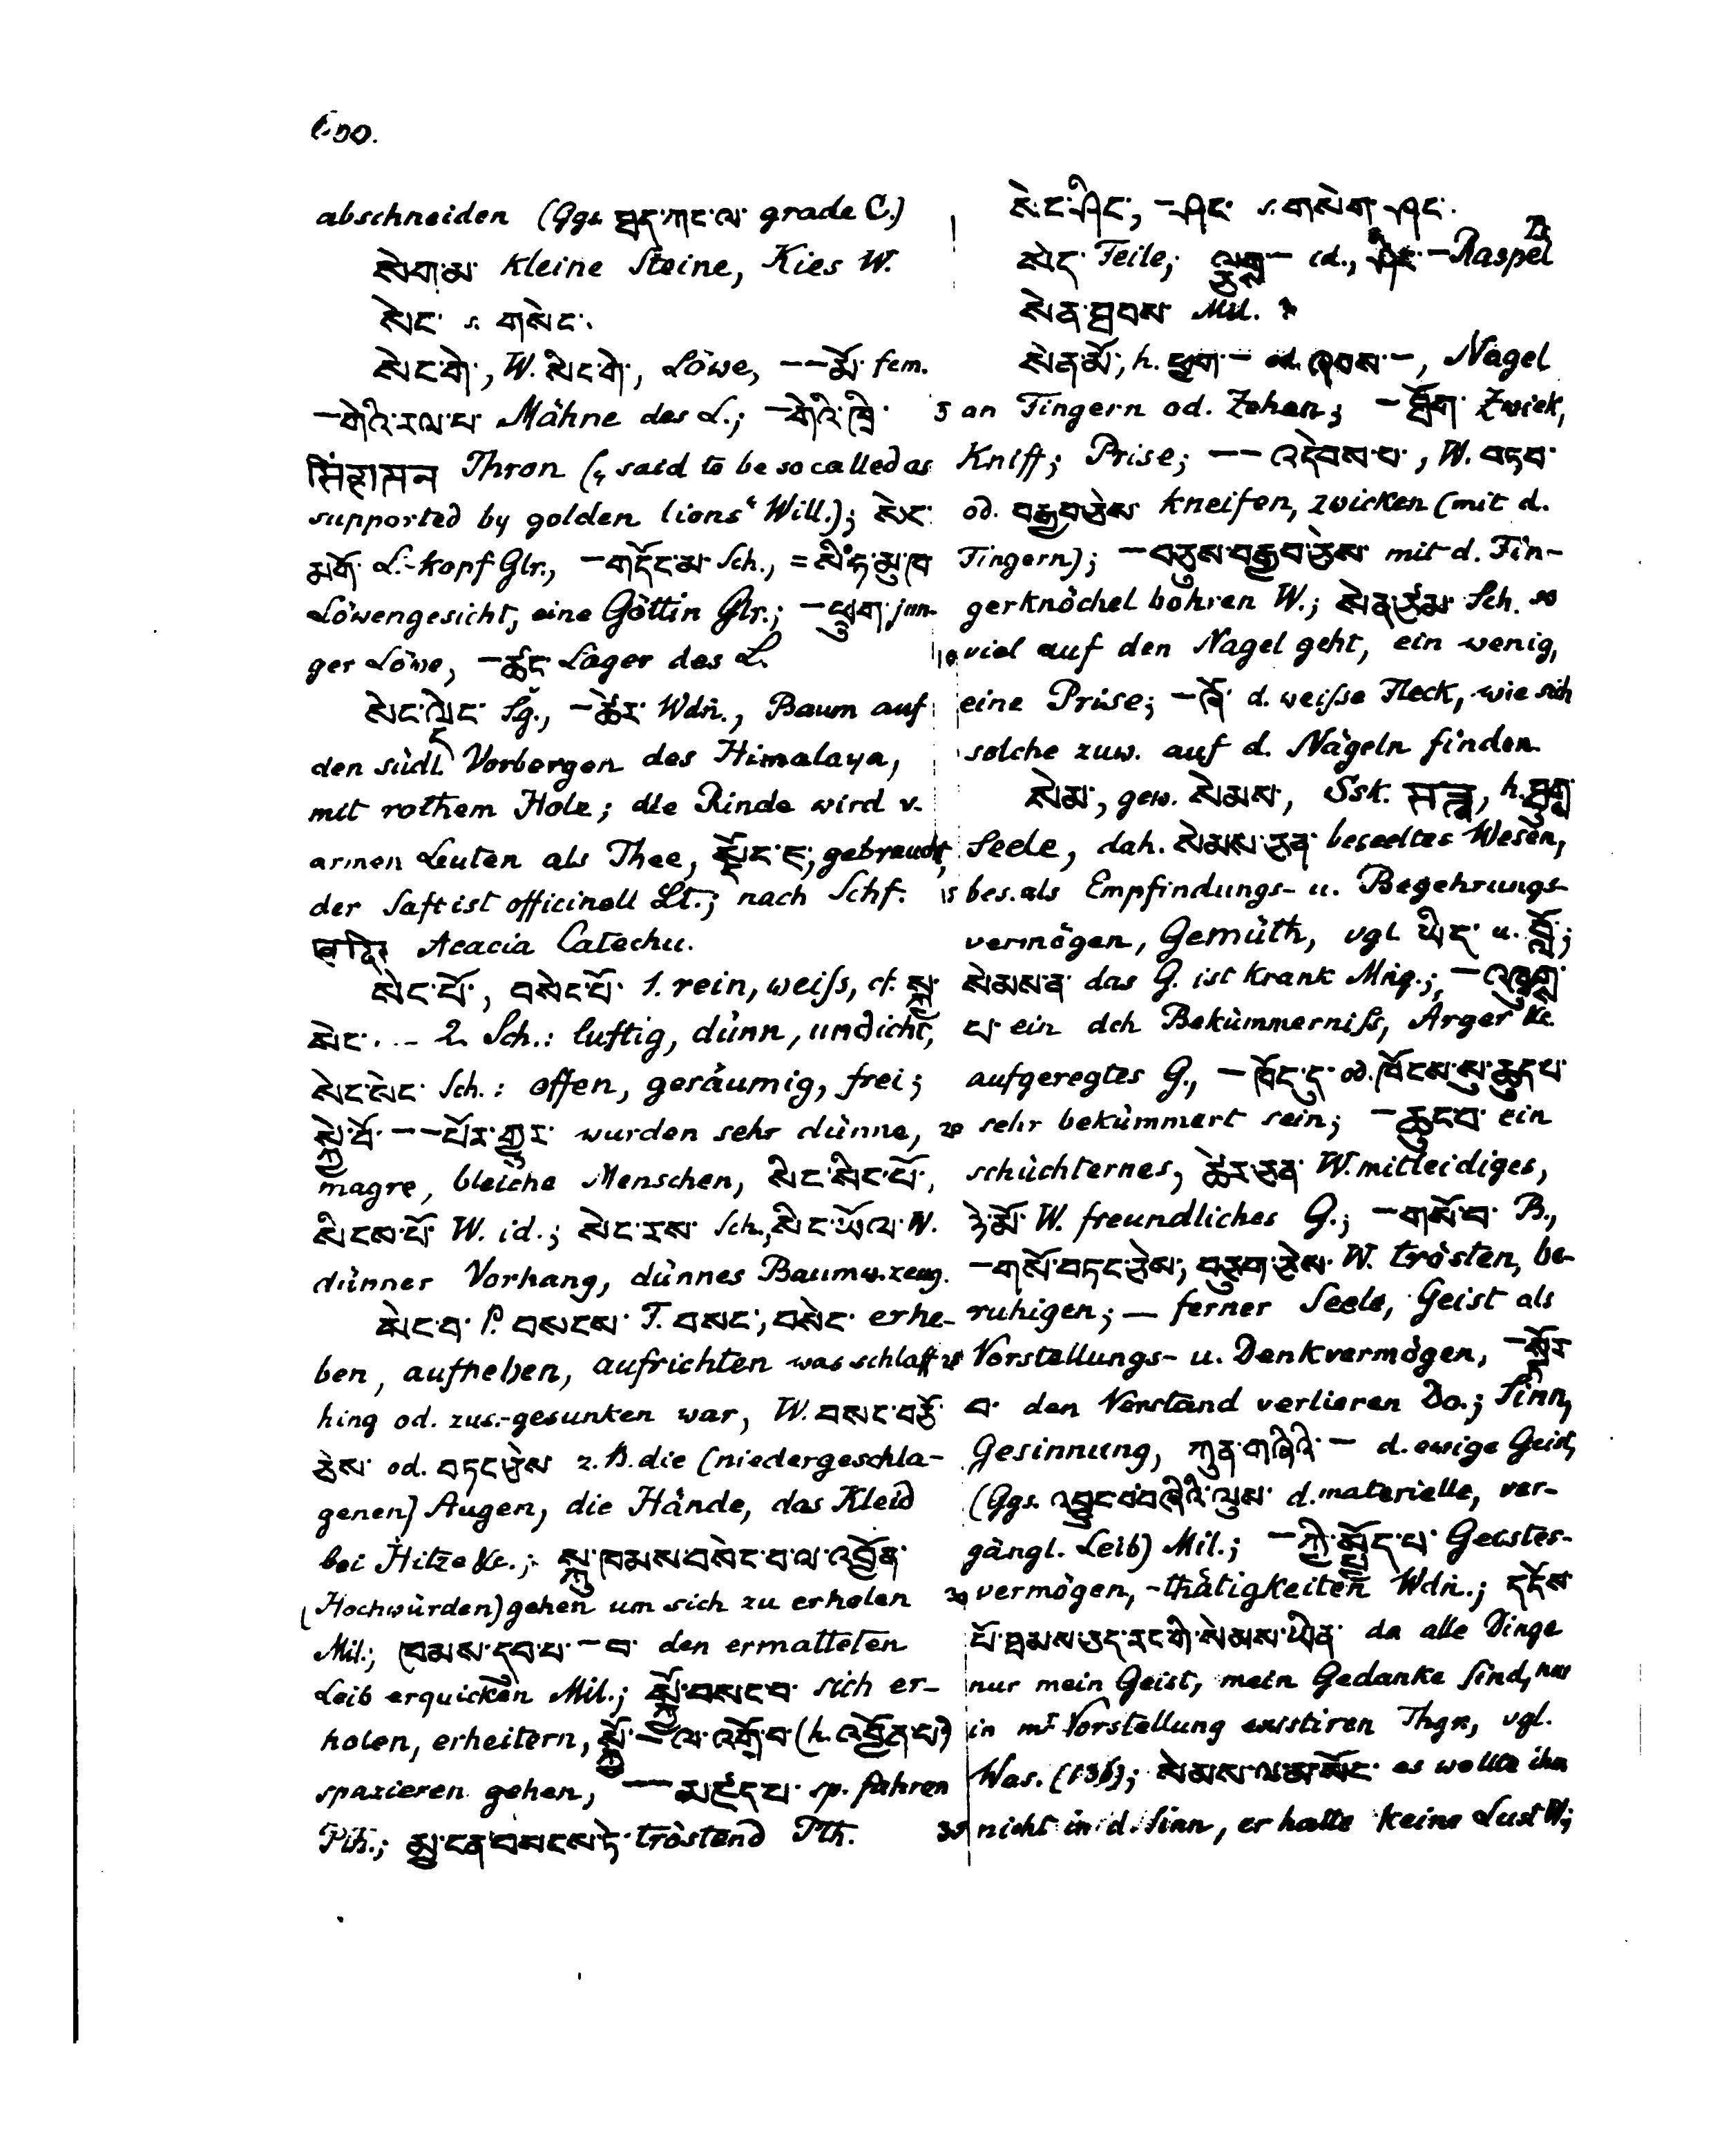 600.
abschneiden (Ggs. ཐད་ཀང་ལ་ grade C.)
སེག་མ་ kleine Steine, Kies W.
སེང་ s. གསེང་.
སེང་གེ་, W. སིང་གེ་, Löwe, – – མོ་ fem.
–གེའི་རལ་པ་ Mähne des L.; –གེའི་ཁྲི་
सिंहासन Thron („said to be so called as
supported by golden lions“ Will.); སེང་
མགོ་ L.-kopf Glr., –གདོང་མ་ Sch., =
Löwengesicht, eine Göttin Glr.; –ཕྲུག་ jun-
ger Löwe, –ཚང་ Lager des L.
སེང་ལྡེང་ Lg., –ཚེར་ Wdṅ., Baum auf
den südl. Vorbergen des Himalaya,
mit rothem Holz; die Rinde wird v.
armen Leuten als Thee, gebraucht,
der Saft ist officinell Lt.; nach Schf.
खदिर Acacia Catechu.
སེང་པོ་, བསེང་པོ་ 1. rein, weiss, cf. སྐྱ་
སེང་. – 2. Sch.: luftig, dünn, undicht,
སེང་སེང་ Sch.: offen, geräumig, frei;
སྐྱེ་བོ་ – – པོར་གྱུར་ wurden sehr dünne,
magre, bleiche Menschen, སིང་སིང་པོ་,
སིངས་པོ་ W. id.; སེང་རས་ Sch., སིང་ཡོལ་ W.
dünner Vorhang, dünnes Baumw.zeug.
སེང་བ་ P. བསངས་ F. བསང་, བསེང་ erhe-
ben, aufheben, aufrichten was schlaff
hing od. zus.-gesunken war, W. བསང་བཅོ་
ཅེས་ od. བཏང་ཅེས z. B. die (niedergeschla-
genen) Augen, die Hände, das Kleid
bei Hitze &c.; སྐུ་ཁམས་བསེང་བ་ལ་འབྱོན་
(Hochwürden) gehen um sich zu erholen
Mil.; ཁམས་དབ་པ་ –བ་ den ermatteten
Leib erquicken Mil.; སྐྱོ་བསང་བ་ sich er-
holen, erheitern, སྐྱོ་ –ལ་འགྲོ་བ་ (h. འབྱོན་པ་)
spazieren gehen, – – མཛད་པ་ sp. fahren
Pth.; མྱ་ངན་བསངས་ཏེ་ tröstend Pth.
སེ་ང་ཤིང་, –ཤང་ s. གསེག་ཤང་.
སེད་ Feile; ལྕག– id., –Raspel
སེན་ཐབས་ Mil. ?
སེན་མོ་, h. ཕྱག་ – od. ཞབས་ –, Nagel
5 an Fingern od. Zehen; – Zwick,
Kniff; Prise; – – འདེབས་པ་, W. བཏབ་
od. བརྒྱབ་ཅེས kneifen, zwicken (mit d.
Fingern); –བཅུས་བརྒྱབ་ཅེས་ mit d. Fin-
gerknöchel bohren W.; སེན་ཙམ་ Sch. so
10 viel auf den Nagel geht, ein wenig,
eine Prise; – d. weisse Fleck, wie sich
solche zuw. auf d. Nägeln finden.
སེམ་, gew. སེམས་, Ssk. सत्त्व, h. ཐུགས་
Seele, dah. སེམས་ཅན་ beseeltes Wesen,
15 bes. als Empfindungs- u. Begehrungs-
vermögen, Gemüth, vgl. ཡིད་ u. བློ་;
སེམས་ན་ das G. ist krank Mṅg.; –འཁྲུག་
པ་ ein dch Bekümmerniss, Ärger &c.
aufgeregtes G., –ཁོང་དུ་ od. ཁོངས་སུ་ཆུད་པ་
20 sehr bekümmert sein; –ཆུང་བ་ ein
schüchternes, ཚེར་ཅན་ W. mitleidiges,
དེ་མོ་ W. freundliches G.; –གསོ་བ་ B.,
–གསོ་བཏང་ཅེས་, བཅུག་ཅེས་ W. trösten, be-
ruhigen; — ferner Seele, Geist als
25 Vorstellungs- u. Denkvermögen, –སྟོར་
བ་ den Verstand verlieren Do.; Sinn,
Gesinnung, ཀུན་གཞིའི་ – d. ewige Geist,
(Ggs. འབྱུང་བ་བཞིའི་ལུས་ d. materielle, ver-
gängl. Leib) Mil.; –ཀྱི་སྤྱོད་པ་ Geistes-
30 vermögen, -thätigkeiten Wdṅ.; དངོས་
པོ་ཐམས་ཅད་རང་གི་སེམས་ཡིན་ da alle Dinge
nur mein Geist, mein Gedanke sind, nur
in mr Vorstellung existiren Thgr, vgl.
Was. (136); སེམས་ལ་མ་སོང་ es wollte ihm
35 nicht in d. Sinn, er hatte keine Lust W.;